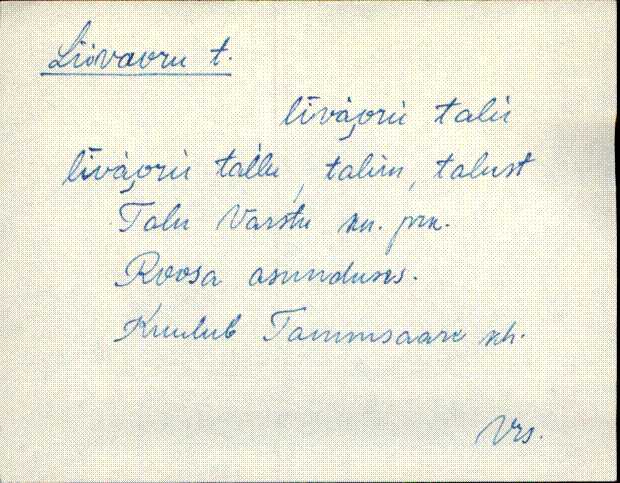 Liivaoru t.
līvàorù talù
līvàorù tal̀lu, talùn, talust
Talu Varstu kn. prk.
Roosa asunduses.
Kuulub Tammsaare kh.
Vrs.